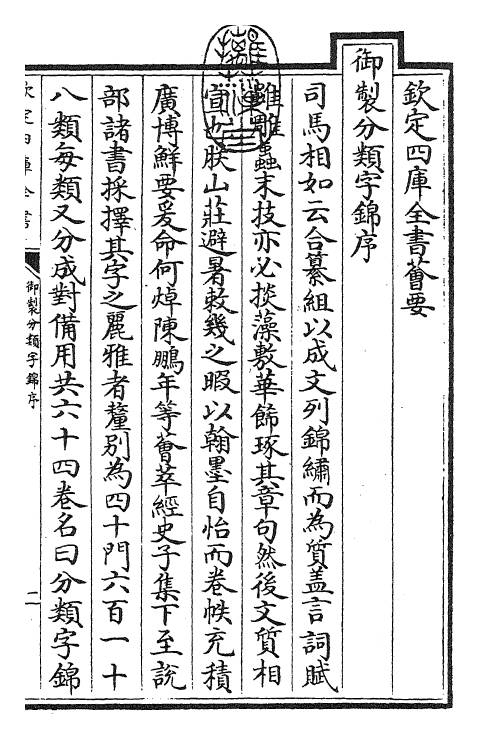 欽定四庫全書薈要
御製分類字錦序
司馬相如云合纂組以成文列錦繡而為質盖言詞賦
雖雕蟲末技亦必掞藻敷華飾琢其章句然後文質相
宣也朕山莊避暑敕幾之暇以翰墨自怡而卷帙充積
廣博鮮要爰命何焯陳鵬年等薈萃經史子集下至說
部諸書採擇其字之麗雅者釐別為四十門六百一十
八類每類又分成對備用共六十四卷名曰分類字錦
欽定四庫全書
御製分類字錦序
二